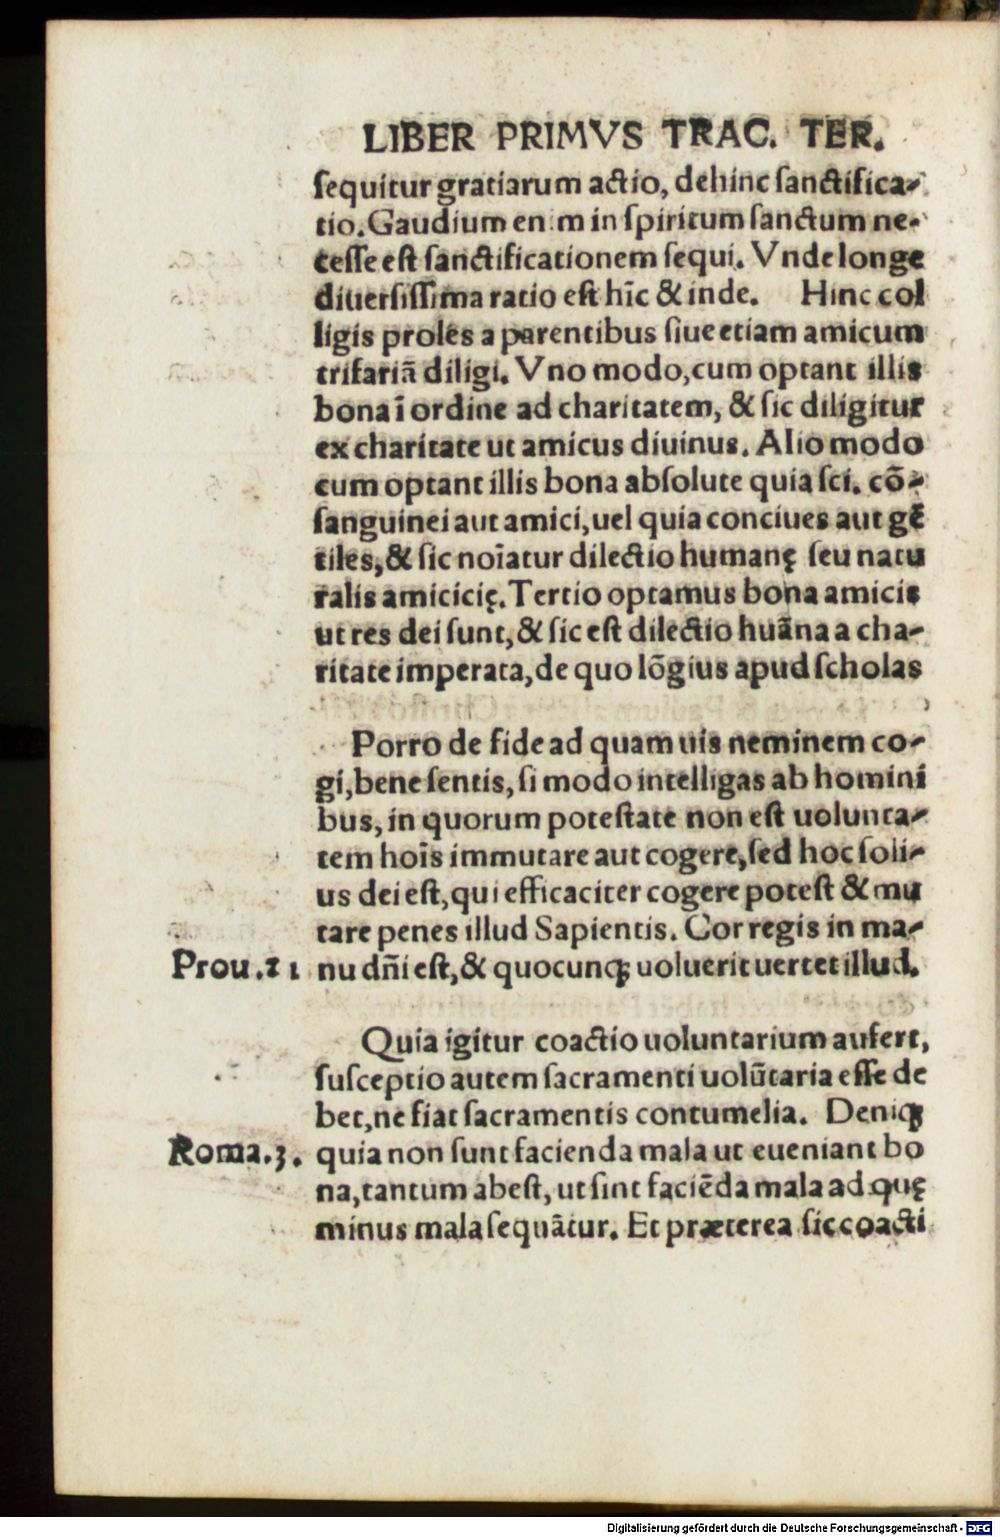 LIBER PRIMVS TRAC. TER.
ſequitur gratiarum actio, dehinc ſanctifica-
tio. Gaudium enim in ſpiritum ſanctum ne-
ceſſe eſt ſanctificationem ſequi. Vnde longe
diuerſiſſima ratio eſt hīc & inde. Hinc col
ligis proles a parentibus ſiue etiam amicum
trifariā diligi. Vno modo, cum optant illis
bona ī ordine ad charitatem, & ſic diligitur
ex charitate ut amicus diuinus. Alio modo
cum optant illis bona abſolute quia ſci. cō-
ſanguinei aut amici, uel quia conciues aut gē
tiles, & ſic noīatur dilectio humanę ſeu natu
ralis amicicię. Tertio optamus bona amicis
ut res dei ſunt, & ſic eſt dilectio huāna a cha-
ritate imperata, de quo lōgius apud ſcholas
Porro de fide ad quam uis neminem co-
gi, bene ſentis, ſi modo intelligas ab homini
bus, in quorum poteſtate non eſt uolunta-
tem hoīs immutare aut cogere, ſed hoc ſoli-
us dei eſt, qui efficaciter cogere poteſt & mu
tare penes illud Sapientis. Cor regis in ma-
Prou. 21 nu dñi eſt, & quocunqꝫ uoluerit uertet illud.
Quia igitur coactio uoluntarium aufert,
ſuſceptio autem ſacramenti uolūtaria eſſe de
bet, ne fiat ſacramentis contumelia. Deniqꝫ
Roma. 3. quia non ſunt facienda mala ut eueniant bo
na, tantum abeſt, ut ſint faciēda mala ad quę
minus mala ſequātur. Et præterea ſic coacti
Digitalisierung gefördert durch die Deutsche Forschungsgemeinschaft - DFG